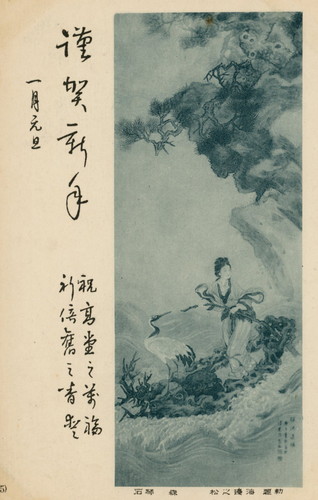 謹賀新年
一月元旦
祝高堂之萬福
祈倍舊之青埜
石琴 森 松之邊海題勅